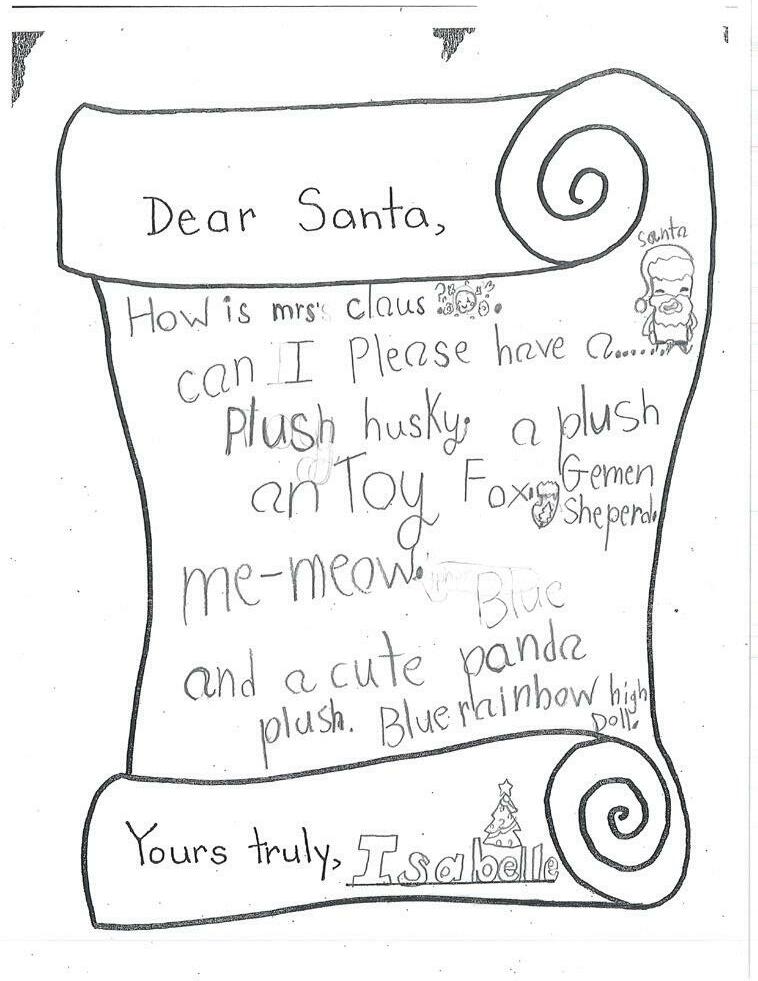 Dear Santa,
santa
How is mrs's claus
can I Please have a.......
Plush husky. a plush
an Toy Fox. Gemen
Sheperd.
me-meow.
Blue
and a cute panda
plush. Blue rainbow high
Doll.
Yours truly, Isabelle